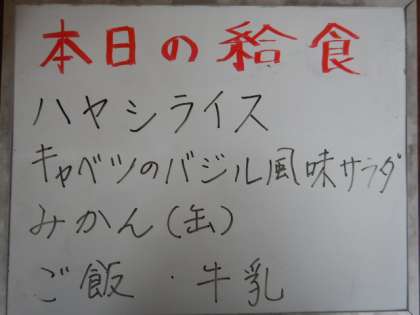 本日の給食
ハヤシライス
キャベツのバジル風味サラダ
みかん(缶)
ご飯・牛乳